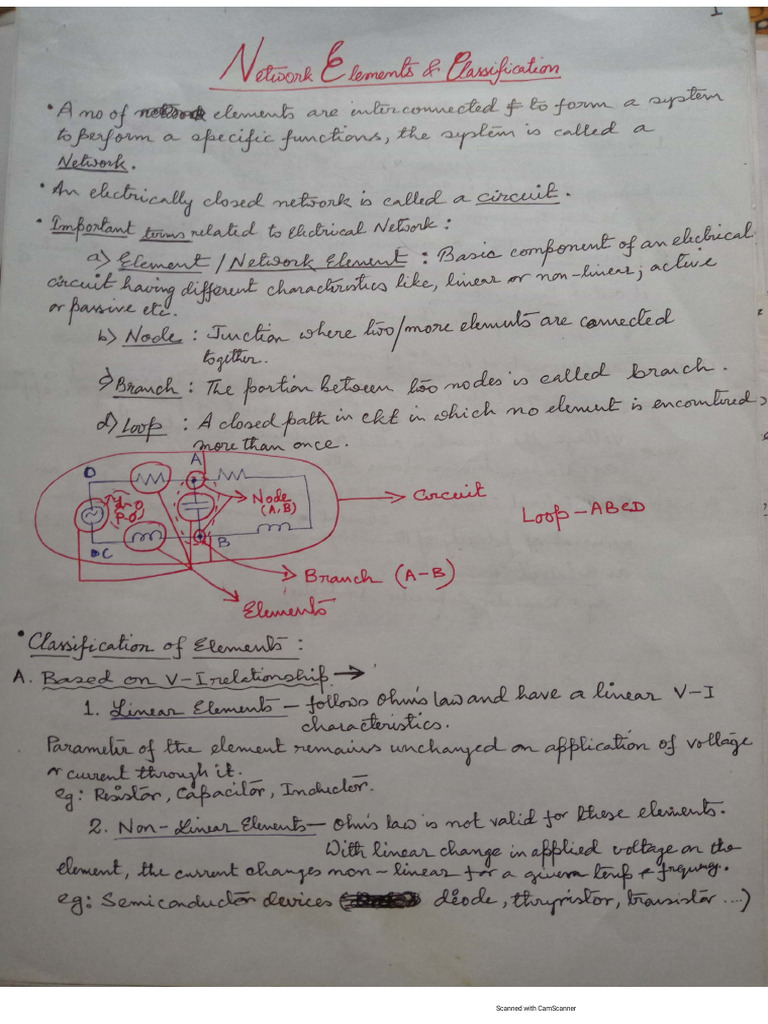 1
Network Elements & Classification
• A no of elements are interconnected to form a system
to perform a specific functions, the system is called a
Network.
• An electrically closed network is called a circuit.
• Important terms related to Electrical Network :
a) Element / Network Element : Basic component of an electrical
circuit having different characteristics like, linear or non-linear; active
or passive etc.
b) Node : Junction where two/more elements are connected
together.
c) Branch : The portion between two nodes is called branch.
d) Loop : A closed path in ckt in which no element is encountered
more than once.
A
D
Node
(A, B)
Circuit
Loop - ABCD
C
B
Branch (A-B)
Elements
• Classification of Elements :
A. Based on V-I relationship →
1. Linear Elements - follows Ohm's law and have a linear V-I
characteristics.
Parameter of the element remains unchanged on application of voltage
or current through it.
eg: Resistor, Capacitor, Inductor.
2. Non-Linear Elements - Ohm's law is not valid for these elements.
With linear change in applied voltage on the
element, the current changes non-linear for a given temp & frequency.
eg: Semiconductor devices ( diode, thryristor, transistor ....)
Scanned with CamScanner